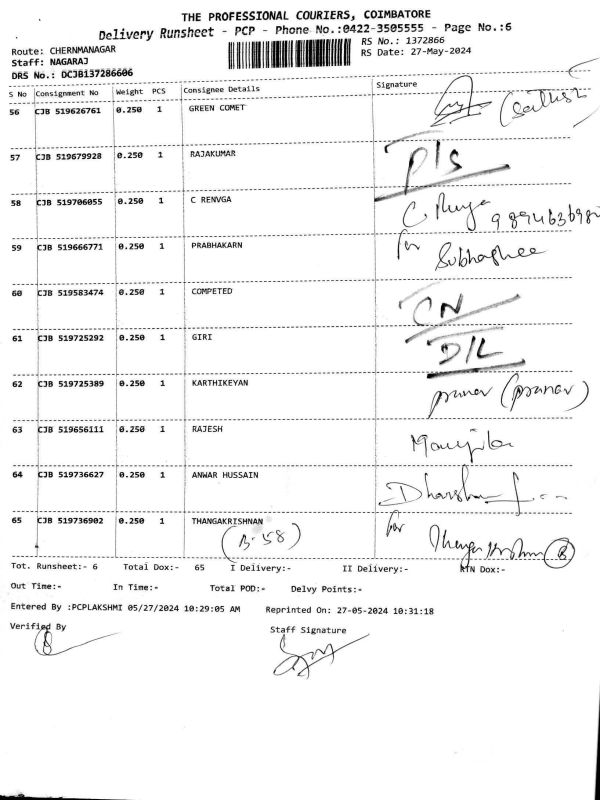 THE PROFESSIONAL COURIERS, COIMBATORE
Delivery Runsheet - PCP - Phone No.:0422-3505555 - Page No.:6
Route: CHERNMANAGAR
RS No.: 1372866
Staff: NAGARAJ
RS Date: 27-May-2024
DRS No.: DCJB137286606
S No Consignment No Weight PCS Consignee Details Signature
56 CJB 519626761 0.250 1 GREEN COMET
57 CJB 519679928 0.250 1 RAJAKUMAR P/S
58 CJB 519706055 0.250 1 C RENVGA C.
59 CJB 519666771 0.250 1 PRABHAKARN for Subhashee
60 CJB 519583474 0.250 1 COMPETED CN
61 CJB 519725292 0.250 1 GIRI D/L
62 CJB 519725389 0.250 1 KARTHIKEYAN pranav (pranav)
63 CJB 519656111 0.250 1 RAJESH
64 CJB 519736627 0.250 1 ANWAR HUSSAIN
65 CJB 519736902 0.250 1 THANGAKRISHNAN for
(B-58)
Tot. Runsheet:- 6 Total Dox:- 65 I Delivery:- II Delivery:- RTN Dox:-
Out Time:- In Time:- Total POD:- Delvy Points:-
Entered By :PCPLAKSHMI 05/27/2024 10:29:05 AM Reprinted On: 27-05-2024 10:31:18
Verified By Staff Signature